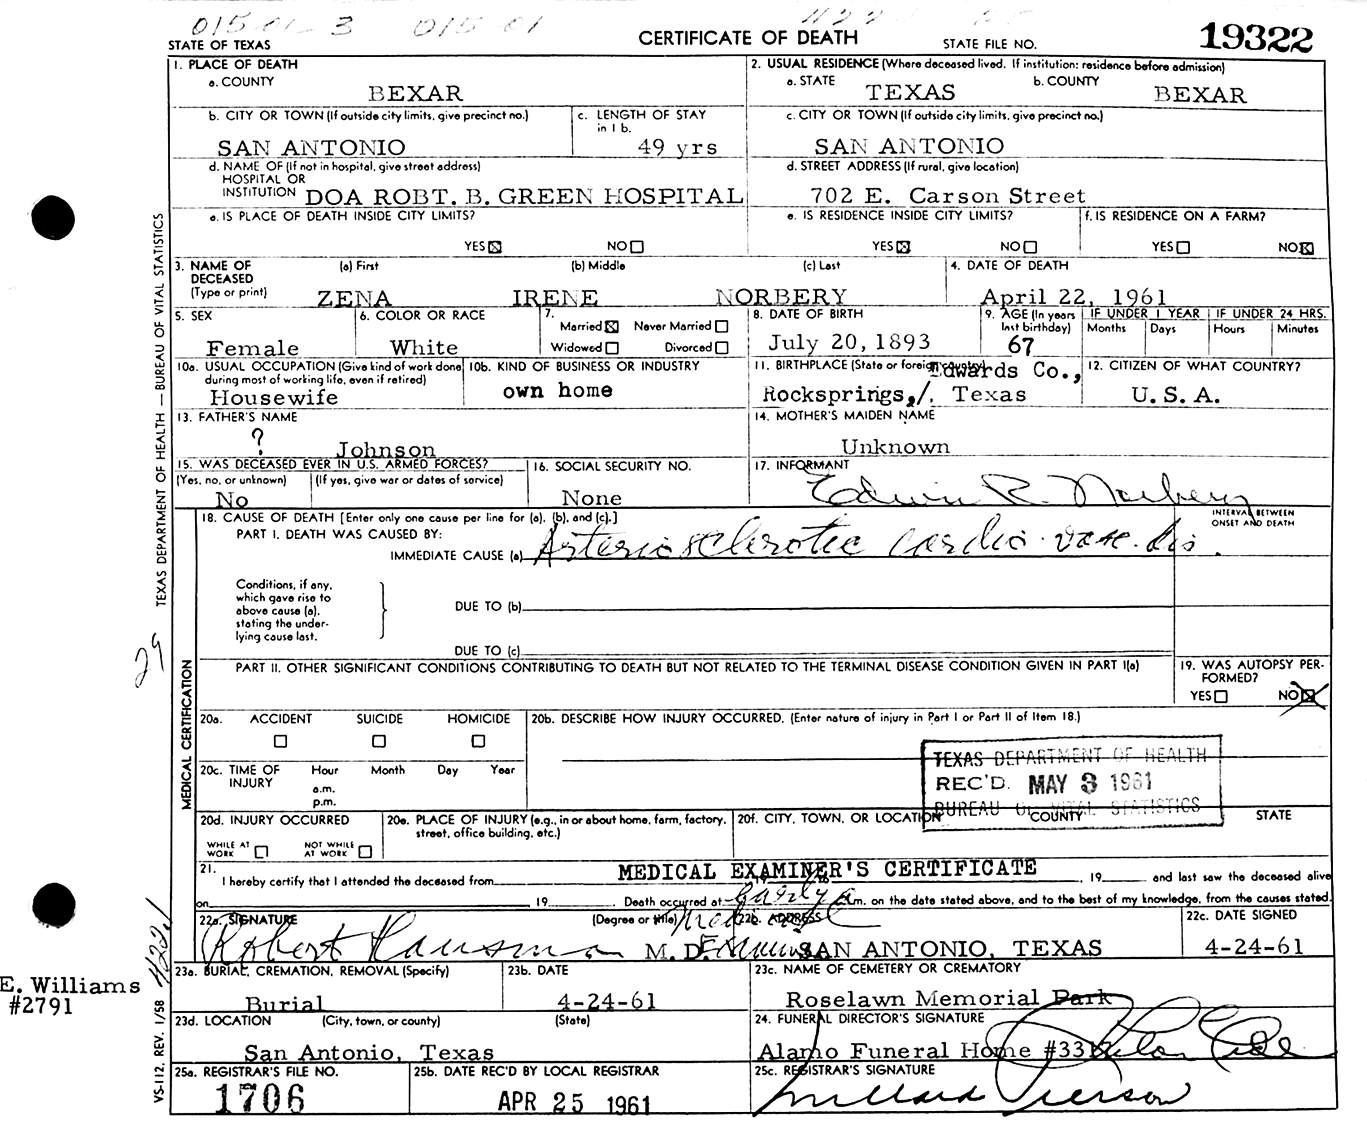 015-01-3 015-01
STATE OF TEXAS CERTIFICATE OF DEATH STATE FILE NO. 19322
1. PLACE OF DEATH 2. USUAL RESIDENCE (Where deceased lived. If institution: residence before admission)
a. COUNTY BEXAR a. STATE TEXAS b. COUNTY BEXAR
b. CITY OR TOWN (If outside city limits, give precinct no.) c. LENGTH OF STAY in 1 b. c. CITY OR TOWN (If outside city limits, give precinct no.)
SAN ANTONIO 49 yrs SAN ANTONIO
d. NAME OF (If not in hospital, give street address) d. STREET ADDRESS (If rural, give location)
HOSPITAL OR
INSTITUTION DOA ROBT. B. GREEN HOSPITAL 702 E. Carson Street
e. IS PLACE OF DEATH INSIDE CITY LIMITS? e. IS RESIDENCE INSIDE CITY LIMITS? f. IS RESIDENCE ON A FARM?
YES☒ NO☐ YES☒ NO☐ YES☐ NO☒
3. NAME OF DECEASED (Type or print) (a) First (b) Middle (c) Last 4. DATE OF DEATH
ZENA IRENE NORBERY April 22, 1961
5. SEX 6. COLOR OR RACE 7. Married☒ Never Married☐ 8. DATE OF BIRTH 9. AGE (In years last birthday) IF UNDER 1 YEAR IF UNDER 24 HRS.
Months Days Hours Minutes
Female White Widowed☐ Divorced☐ July 20, 1893 67
10a. USUAL OCCUPATION (Give kind of work done during most of working life, even if retired) 10b. KIND OF BUSINESS OR INDUSTRY 11. BIRTHPLACE (State or foreign country) 12. CITIZEN OF WHAT COUNTRY?
Housewife own home Rocksprings, Edwards Co., Texas U. S. A.
13. FATHER'S NAME 14. MOTHER'S MAIDEN NAME
? Johnson Unknown
15. WAS DECEASED EVER IN U.S. ARMED FORCES? 16. SOCIAL SECURITY NO. 17. INFORMANT
(Yes, no, or unknown) (If yes, give war or dates of service)
No None Edwin R. Norbery
18. CAUSE OF DEATH [Enter only one cause per line for (a), (b), and (c).] INTERVAL BETWEEN ONSET AND DEATH
PART I. DEATH WAS CAUSED BY:
IMMEDIATE CAUSE (a) Arteriosclerotic cardio-vasc. dis.
Conditions, if any, which gave rise to above cause (a), stating the underlying cause last.
DUE TO (b)
DUE TO (c)
PART II. OTHER SIGNIFICANT CONDITIONS CONTRIBUTING TO DEATH BUT NOT RELATED TO THE TERMINAL DISEASE CONDITION GIVEN IN PART I(a) 19. WAS AUTOPSY PERFORMED?
YES☐ NO☒
20a. ACCIDENT SUICIDE HOMICIDE 20b. DESCRIBE HOW INJURY OCCURRED. (Enter nature of injury in Part I or Part II of Item 18.)
☐ ☐ ☐
TEXAS DEPARTMENT OF HEALTH
REC'D. MAY 3 1961
BUREAU OF VITAL STATISTICS
20c. TIME OF INJURY Hour a.m. p.m. Month Day Year
20d. INJURY OCCURRED 20e. PLACE OF INJURY (e.g., in or about home, farm, factory, street, office building, etc.) 20f. CITY, TOWN, OR LOCATION COUNTY STATE
WHILE AT WORK ☐ NOT WHILE AT WORK ☐
21. MEDICAL EXAMINER'S CERTIFICATE
I hereby certify that I attended the deceased from , 19 and last saw the deceased alive
on 19 . Death occurred at early a m. on the date stated above, and to the best of my knowledge, from the causes stated.
22a. SIGNATURE (Degree or title) 22b. ADDRESS 22c. DATE SIGNED
Robert Hausman M. D. SAN ANTONIO, TEXAS 4-24-61
23a. BURIAL, CREMATION, REMOVAL (Specify) 23b. DATE 23c. NAME OF CEMETERY OR CREMATORY
Burial 4-24-61 Roselawn Memorial Park
23d. LOCATION (City, town, or county) (State) 24. FUNERAL DIRECTOR'S SIGNATURE
San Antonio, Texas Alamo Funeral Home
25a. REGISTRAR'S FILE NO. 25b. DATE REC'D BY LOCAL REGISTRAR 25c. REGISTRAR'S SIGNATURE
1706 APR 25 1961
TEXAS DEPARTMENT OF HEALTH — BUREAU OF VITAL STATISTICS
MEDICAL CERTIFICATION
29
VS-112, REV. 1/58
E. Williams
#2791